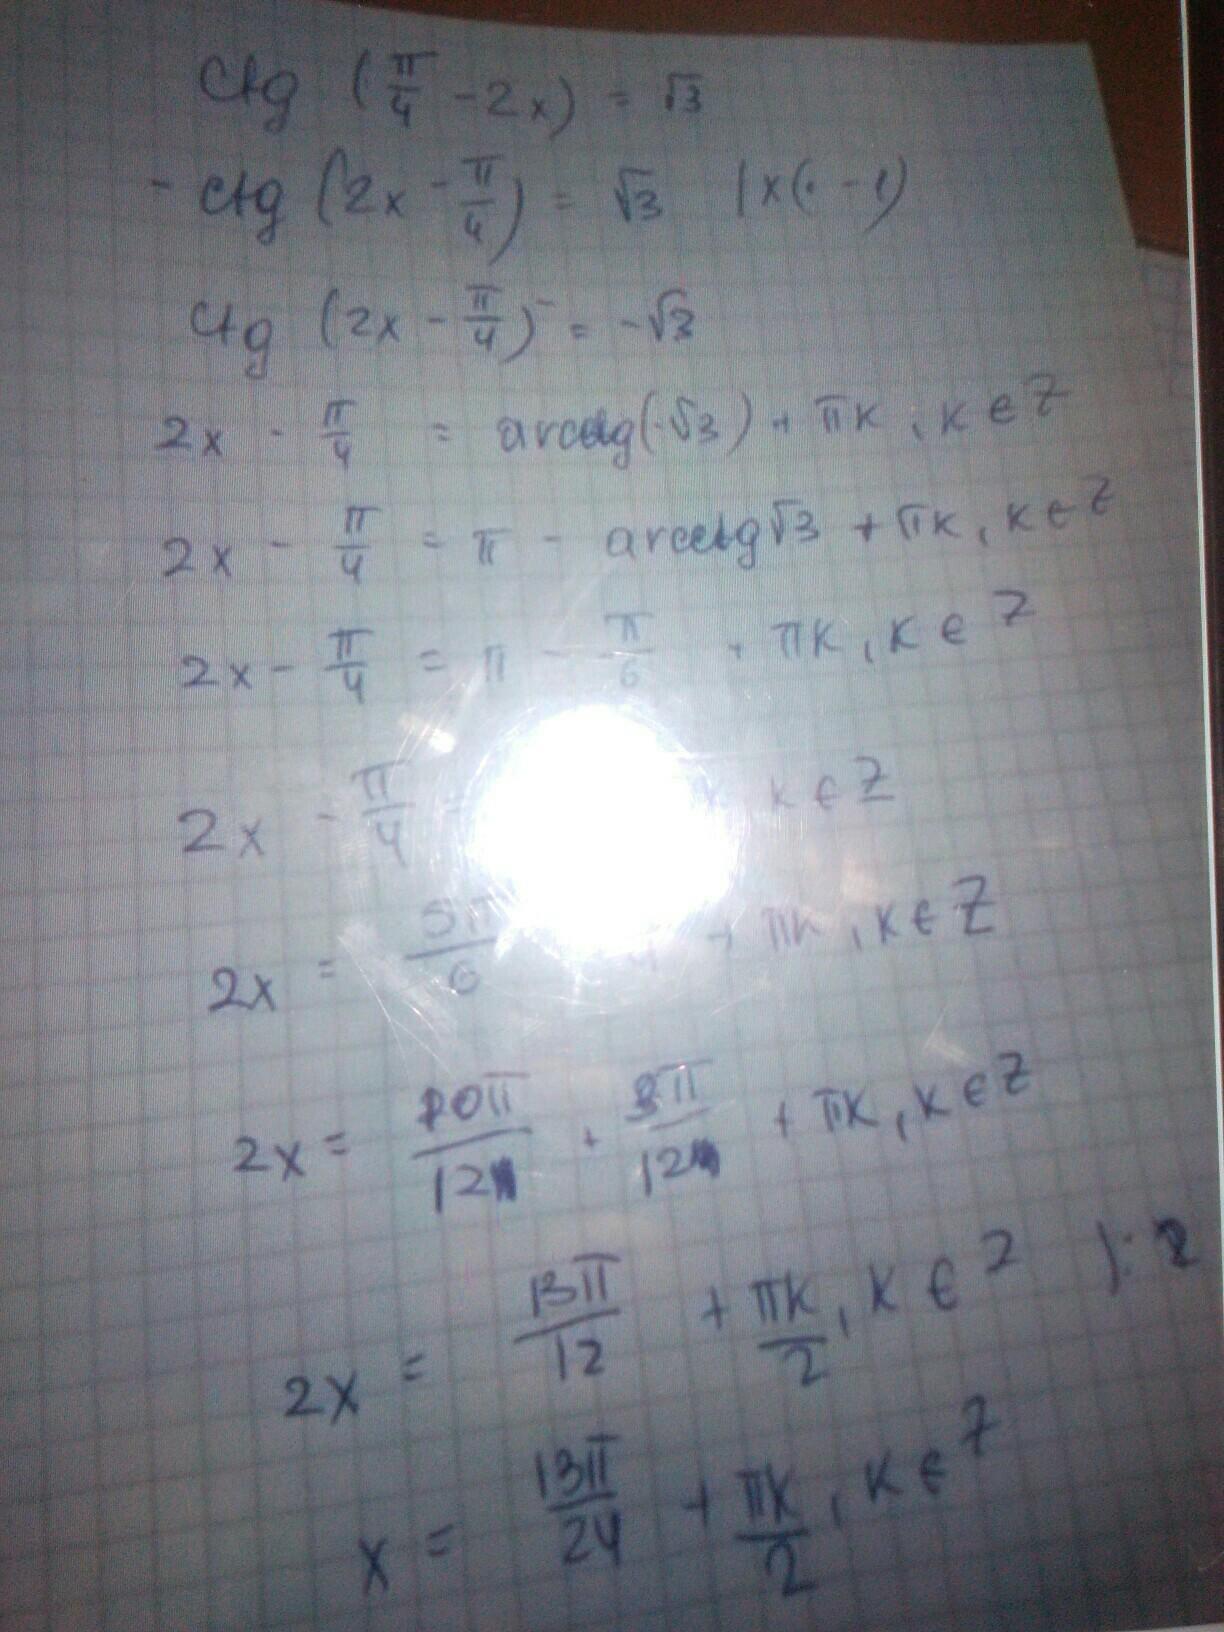 ctg (π/4 - 2x) = √3
- ctg (2x - π/4) = √3 | x(· -1)
ctg (2x - π/4) = -√3
2x - π/4 = arcctg(-√3) + πk, k ∈ Z
2x - π/4 = π - arcctg√3 + πk, k ∈ Z
2x - π/4 = π - π/6 + πk, k ∈ Z
2x - π/4 = k ∈ Z
2x = 5π/6 4 + πk, k ∈ Z
2x = 10π/12 + 3π/12 + πk, k ∈ Z
2x = 13π/12 + πk/2, k ∈ Z ) : 2
x = 13π/24 + πk/2, k ∈ Z